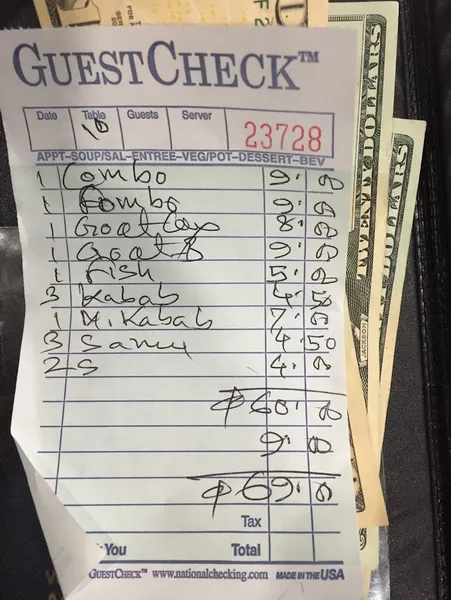 GUESTCHECK™
Date Table Guests Server
10
23728
APPT-SOUP/SAL-ENTREE-VEG/POT-DESSERT-BEV
1 Combo 9.00
1 Combo 9.00
1 Goat 8.00
1 Goat 9.00
1 Fish 5.00
3 Kabab 4.50
1 M. Kabab 7.00
3 4.50
2 S 4.00
$60.00
9.00
$69.00
Tax
You Total
GUESTCHECK™ www.nationalchecking.com MADE IN THE USA
TWENTY DOLLARS
JACKSON
DOLLARS